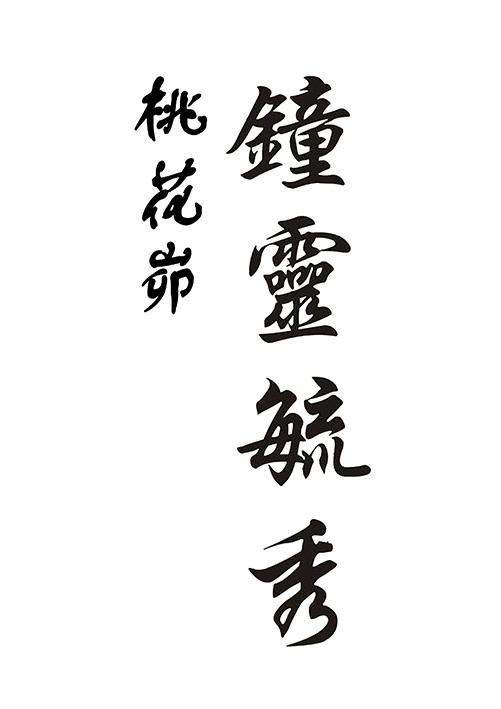 鐘靈毓秀
桃花峁